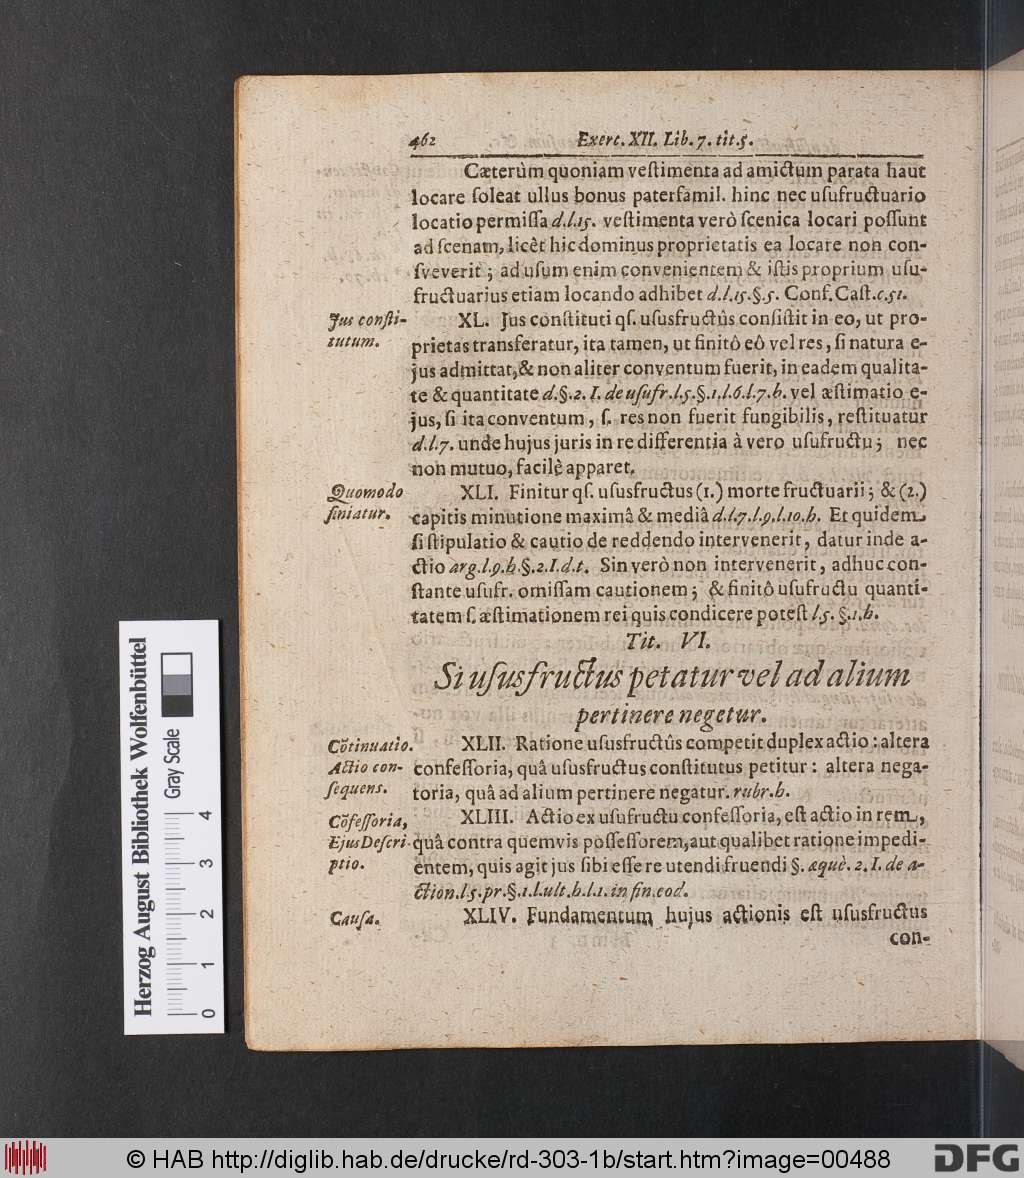 462 Exerc. XII. Lib. 7. tit. 5.
Cæterùm quoniam vestimenta ad amictum parata haut
locare soleat ullus bonus paterfamil. hinc nec usufructuario
locatio permissa d.l.15. vestimenta verò scenica locari possunt
ad scenam, licèt hic dominus proprietatis ea locare non con-
sveverit; ad usum enim convenientem & istis proprium usu-
fructuarius etiam locando adhibet d.l.15.§.5. Conf. Cast.c.51.
Jus consti-
tutum.
XL. Jus constituti qs. ususfructûs consistit in eo, ut pro-
prietas transferatur, ita tamen, ut finitô eô vel res, si natura e-
jus admittat, & non aliter conventum fuerit, in eadem qualita-
te & quantitate d.§.2. I. de usufr.l.5.§.1.l.6.l.7.h. vel æstimatio e-
jus, si ita conventum, s. res non fuerit fungibilis, restituatur
d.l.7. unde hujus juris in re differentia à vero usufructu; nec
non mutuo, facilè apparet.
Quomodo
finiatur.
XLI. Finitur qs. ususfructus (1.) morte fructuarii; & (2.)
capitis minutione maximâ & mediâ d.l.7.l.9.l.10.h. Et quidem
si stipulatio & cautio de reddendo intervenerit, datur inde a-
ctio arg.l.9.h.§.2.I.d.t. Sin verò non intervenerit, adhuc con-
stante usufr. omissam cautionem; & finitô usufructu quanti-
tatem s. æstimationem rei quis condicere potest l.5. §.1.h.
Tit. VI.
Si ususfructus petatur vel ad alium
pertinere negetur.
Cõtinuatio.
Actio con-
sequens.
XLII. Ratione ususfructûs competit duplex actio: altera
confessoria, quâ ususfructus constitutus petitur: altera nega-
toria, quâ ad alium pertinere negatur. rubr.h.
Cõfessoria,
Ejus Descri-
ptio.
XLIII. Actio ex usufructu confessoria, est actio in rem,
quâ contra quemvis possessorem, aut qualibet ratione impedi-
entem, quis agit jus sibi esse re utendi fruendi §. æquè. 2. I. de a-
ction.l.5.pr.§.1.l.ult.h.l.1. in fin. eod.
Causa.
XLIV. Fundamentum hujus actionis est ususfructus
con-
Herzog August Bibliothek Wolfenbüttel
Gray Scale
0 1 2 3 4
© HAB http://diglib.hab.de/drucke/rd-303-1b/start.htm?image=00488
DFG